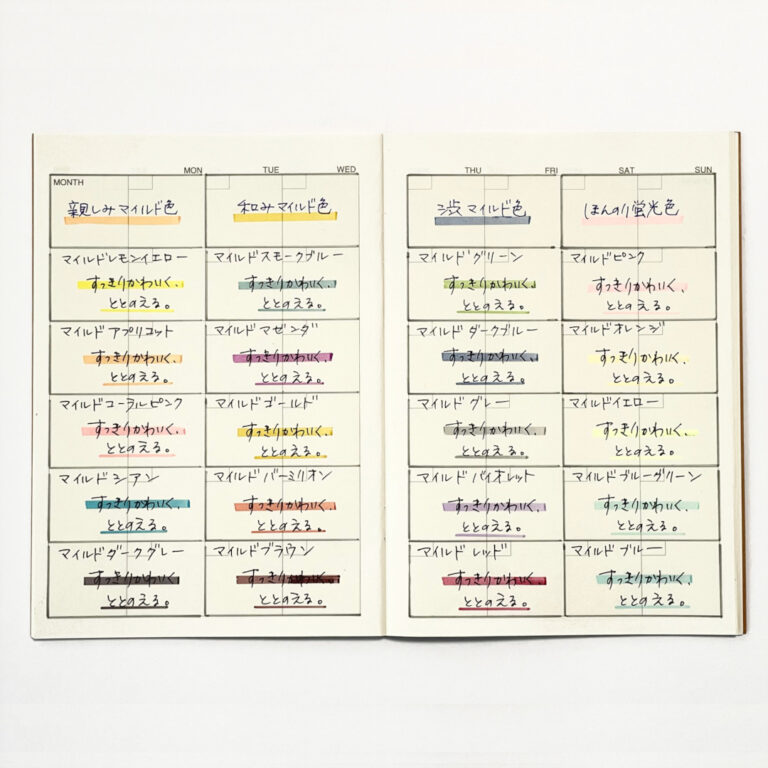 MON TUE WED THU FRI SAT SUN
MONTH
親しみマイルド色
和みマイルド色
渋マイルド色
ほんのり蛍光色
マイルドレモンイエロー
すっきりかわいく、
ととのえる。
マイルドスモークブルー
すっきりかわいく、
ととのえる。
マイルドグリーン
すっきりかわいく、
ととのえる。
マイルドピンク
すっきりかわいく、
ととのえる。
マイルドアプリコット
すっきりかわいく、
ととのえる。
マイルドマゼンダ
すっきりかわいく、
ととのえる。
マイルドダークブルー
すっきりかわいく、
ととのえる。
マイルドオレンジ
すっきりかわいく、
ととのえる。
マイルドコーラルピンク
すっきりかわいく、
ととのえる。
マイルドゴールド
すっきりかわいく、
ととのえる。
マイルドグレー
すっきりかわいく、
ととのえる。
マイルドイエロー
すっきりかわいく、
ととのえる。
マイルドシアン
すっきりかわいく、
ととのえる。
マイルドバーミリオン
すっきりかわいく、
ととのえる。
マイルドバイオレット
すっきりかわいく、
ととのえる。
マイルドブルーグリーン
すっきりかわいく、
ととのえる。
マイルドダークグレー
すっきりかわいく、
ととのえる。
マイルドブラウン
すっきりかわいく、
ととのえる。
マイルドレッド
すっきりかわいく、
ととのえる。
マイルドブルー
すっきりかわいく、
ととのえる。